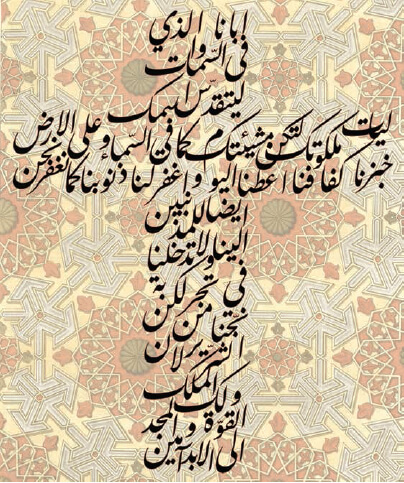 ابانا الذي
في السّموات
ليتقدّس اسمك
ليات ملكوتك لتكن مشيئتك كما في السّماء وعلى الارض
خبزنا كفافنا اعطنا اليوم واغفر لنا ذنوبنا كما نغفر نحن
ايضا للمذنبين
الينا ولا تدخلنا
في تجربة لكن
نجّنا من
الشّرير لان
لك الملك
و القوّة و المجد
الى الابد آمين